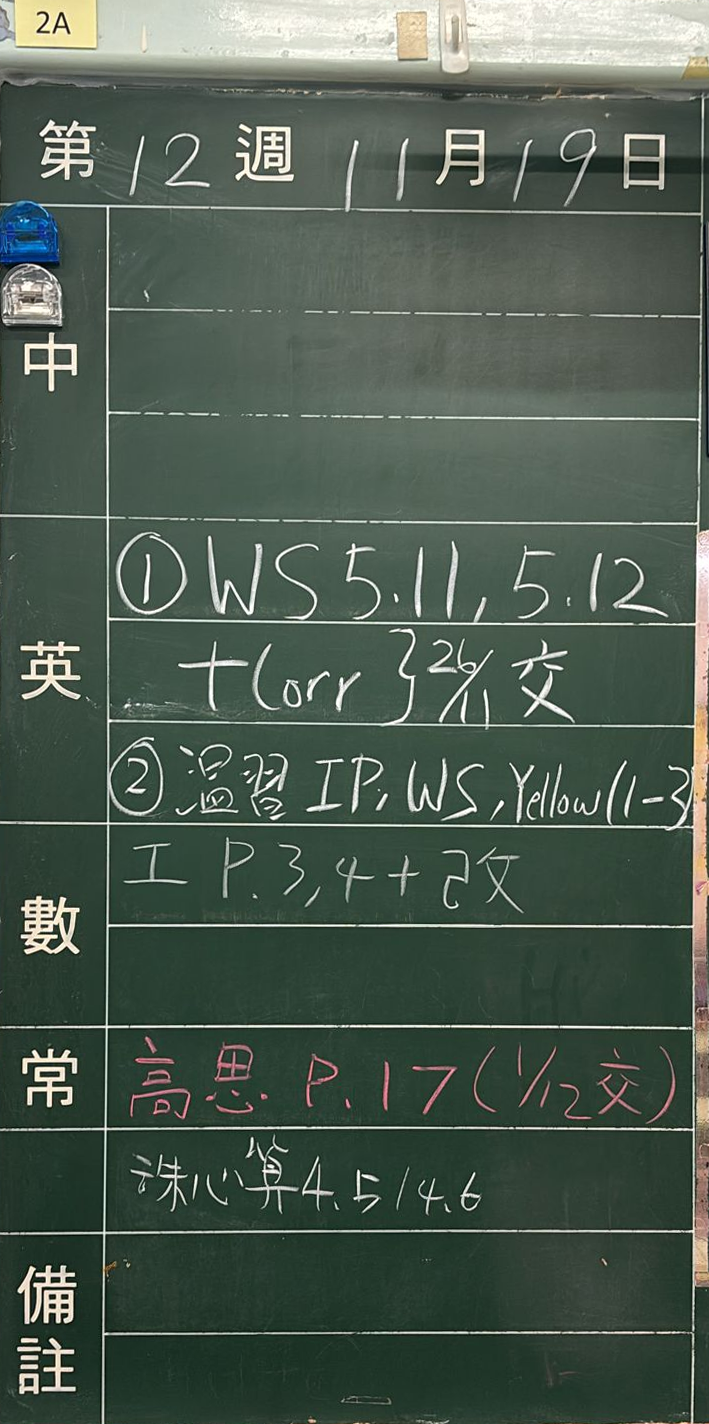 2A
第12週 11月19日
中
英
① WS 5.11, 5.12
+Corr } 26/11 交
② 溫習 IP, WS, Yellow (1-3)
數
工 P.3,4+改
常
高思 P.17 (1/12交)
珠心算4.5/4.6
備註